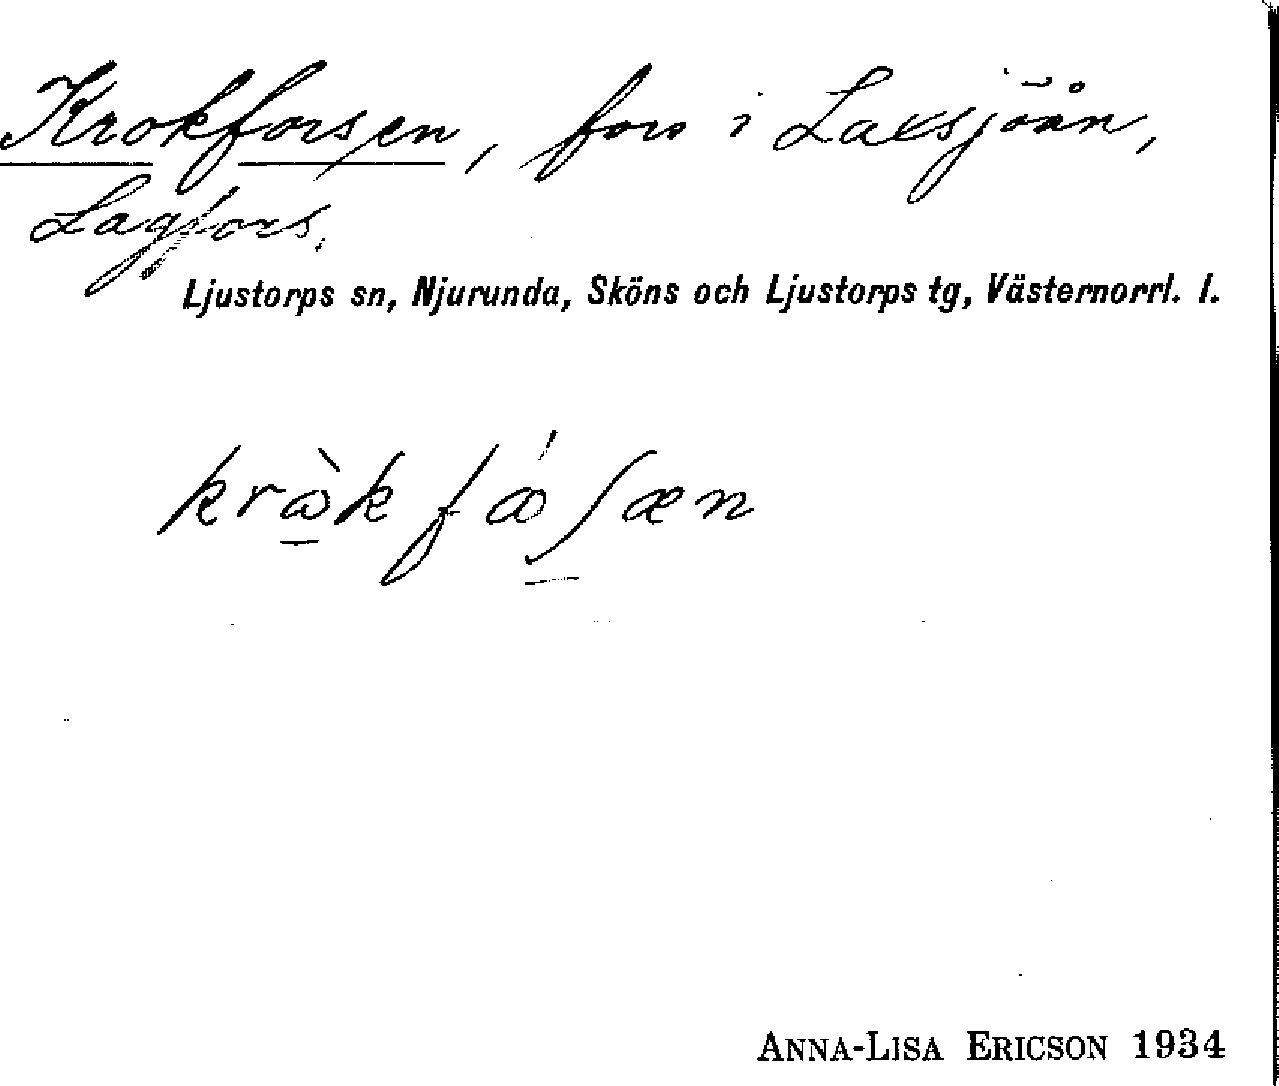 Krokforsen, fors i Laxsjöån,
Lagfors.
Ljustorps sn, Njurunda, Sköns och Ljustorps tg, Västernorrl. l.
ANNA-LISA ERICSON 1934